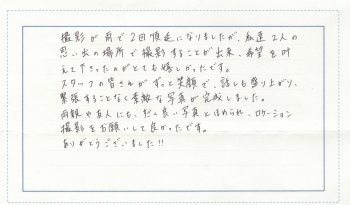 撮影が雨で2回順延になりましたが、私達2人の
思い出の場所で撮影することが出来、希望を叶
えて下さったのがとても嬉しかったです。
スタッフの皆さんがずっと笑顔で、話しも盛り上がり、
緊張することなく素敵な写真が完成しました。
両親や友人にも、すごく良い写真とほめられ、ロケーション
撮影をお願いして良かったです。
ありがとうございました!!